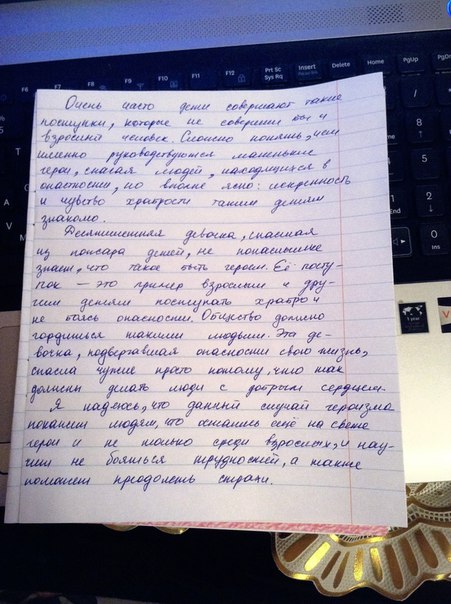 F6 F7 F8 F9 F10 F11 F12 Prt Sc Sys Rq Insert Delete Home PgUp PgDn
Очень часто дети совершают такие
поступки, которые не совершит бы и
взрослый человек. Сложно понять, чем
именно руководствуются маленькие
герои, спасая людей, находящихся в
опасности, но вполне ясно: искренность
и чувство храбрости таким детям
знакомо.
Десятилетняя девочка, спасшая
из пожара детей, не понаслышке
знает, что такое быть героем. Её посту-
пок – это пример взрослым и дру-
гим детям поступать храбро и
не боясь опасности. Общество должно
гордиться такими людьми. Эта де-
вочка, подвергавшая опасности свою жизнь,
спасла чужие просто потому, что так
должны делать люди с добрым сердцем.
Я надеюсь, что данный случай героизма
покажет людям, что остались ещё на свете
герои и не только среди взрослых, и нау-
чит не бояться трудностей, а также
поможет преодолеть страхи.